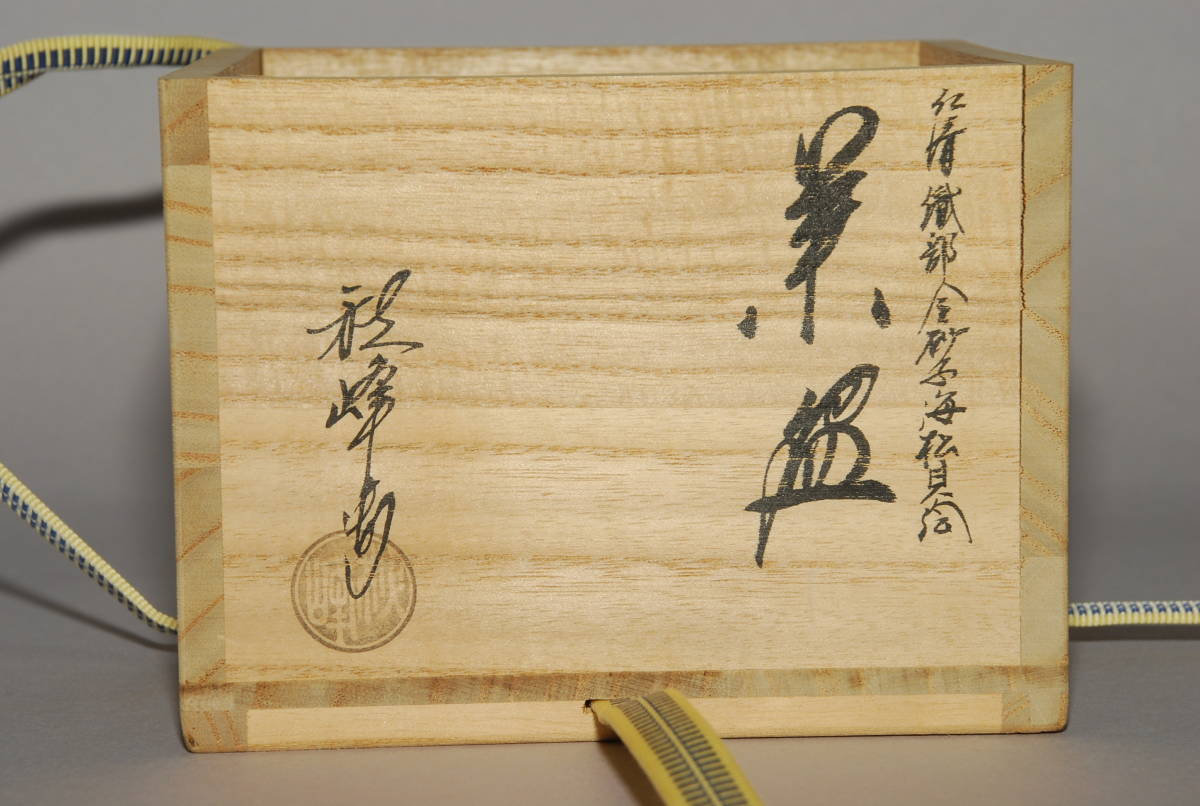 仁清織部金砂子海松貝絵
茶盌
秋峰造
秋峰